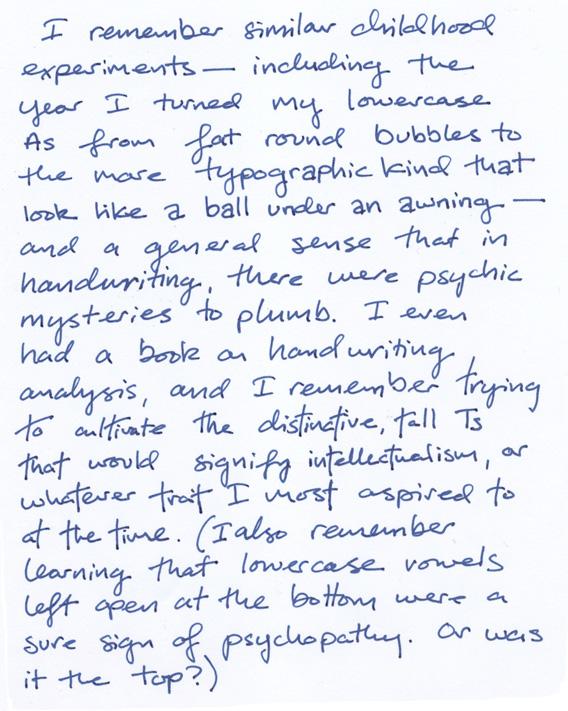 I remember similar childhood
experiments — including the
year I turned my lowercase
As from fat round bubbles to
the more typographic kind that
look like a ball under an awning —
and a general sense that in
handwriting, there were psychic
mysteries to plumb. I even
had a book on handwriting
analysis, and I remember trying
to cultivate the distinctive, tall Ts
that would signify intellectualism, or
whatever trait I most aspired to
at the time. (I also remember
learning that lowercase vowels
left open at the bottom were a
sure sign of psychopathy. Or was
it the top?)